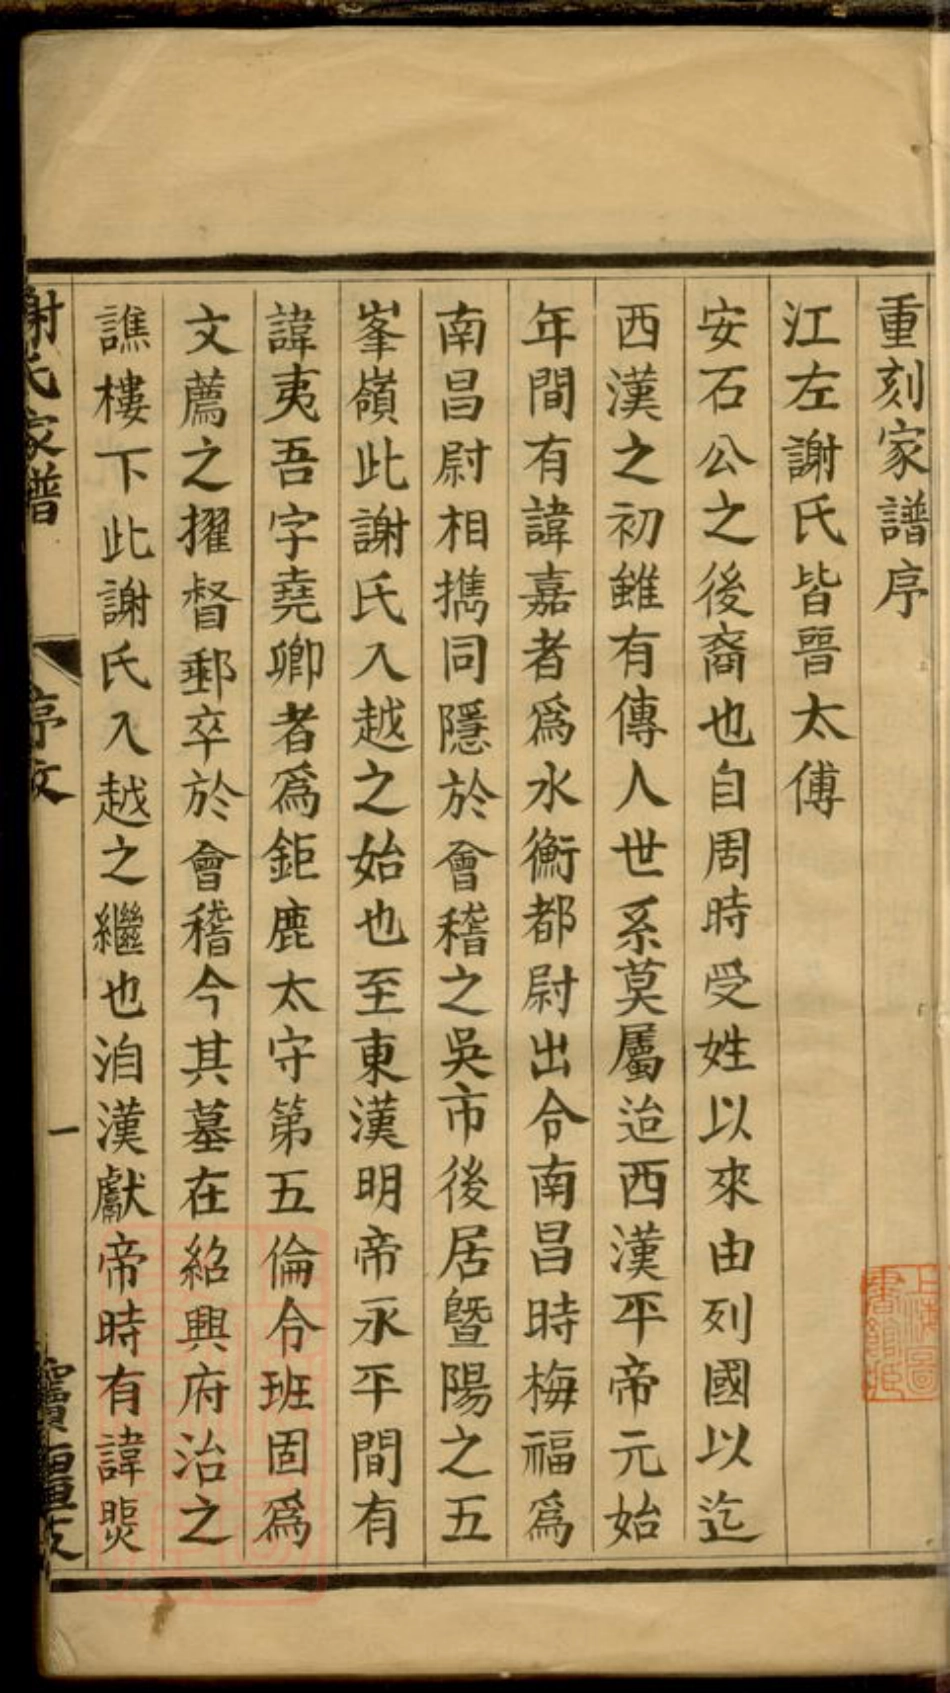 重刻家譜序
江左謝氏皆晉太傅
安石公之後裔也自周時受姓以來由列國以迄
西漢之初雖有傳人世系莫屬迨西漢平帝元始
年間有諱嘉者爲水衡都尉出合南昌時梅福爲
南昌尉相攜同隱於會稽之吳市後居暨陽之五
峯嶺此謝氏入越之始也至東漢明帝永平間有
諱夷吾字堯卿者爲鉅鹿太守第五倫令班固爲
文薦之擢督郵卒於會稽今其墓在紹興府治之
譙樓下此謝氏入越之繼也洎漢獻帝時有諱煚
謝氏家譜
序文
一
寶樹